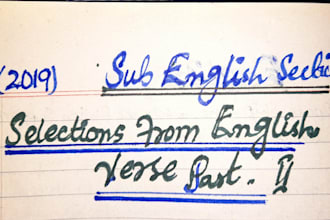 (2019) Sub English Sectio
Selections from English
Verse Part. II